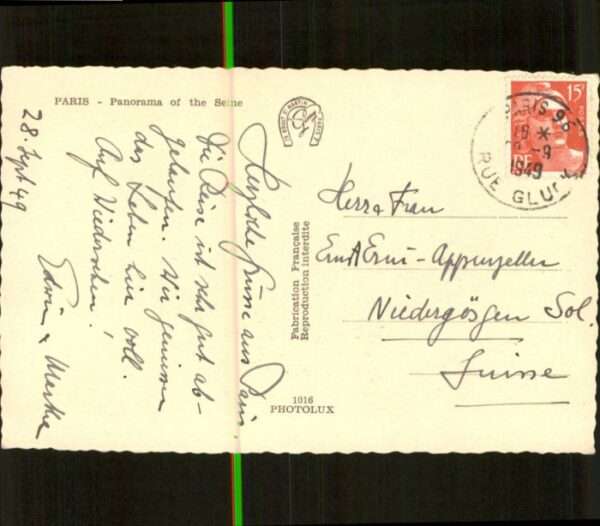 PARIS - Panorama of the Seine
28. Sept 49
Herzliche Grüsse aus Paris.
Die Reise ist sehr gut ab-
gelaufen. Wir geniessen
das Leben hier voll.
Auf Wiedersehen!
Edwin & Martha
Fabrication Française
Reproduction interdite
1016
PHOTOLUX
15F
PARIS 96
1949
RUE GLUCK
Herr & Frau
Ernst Erni-Appenzeller
Niedergösgen Sol.
Suisse